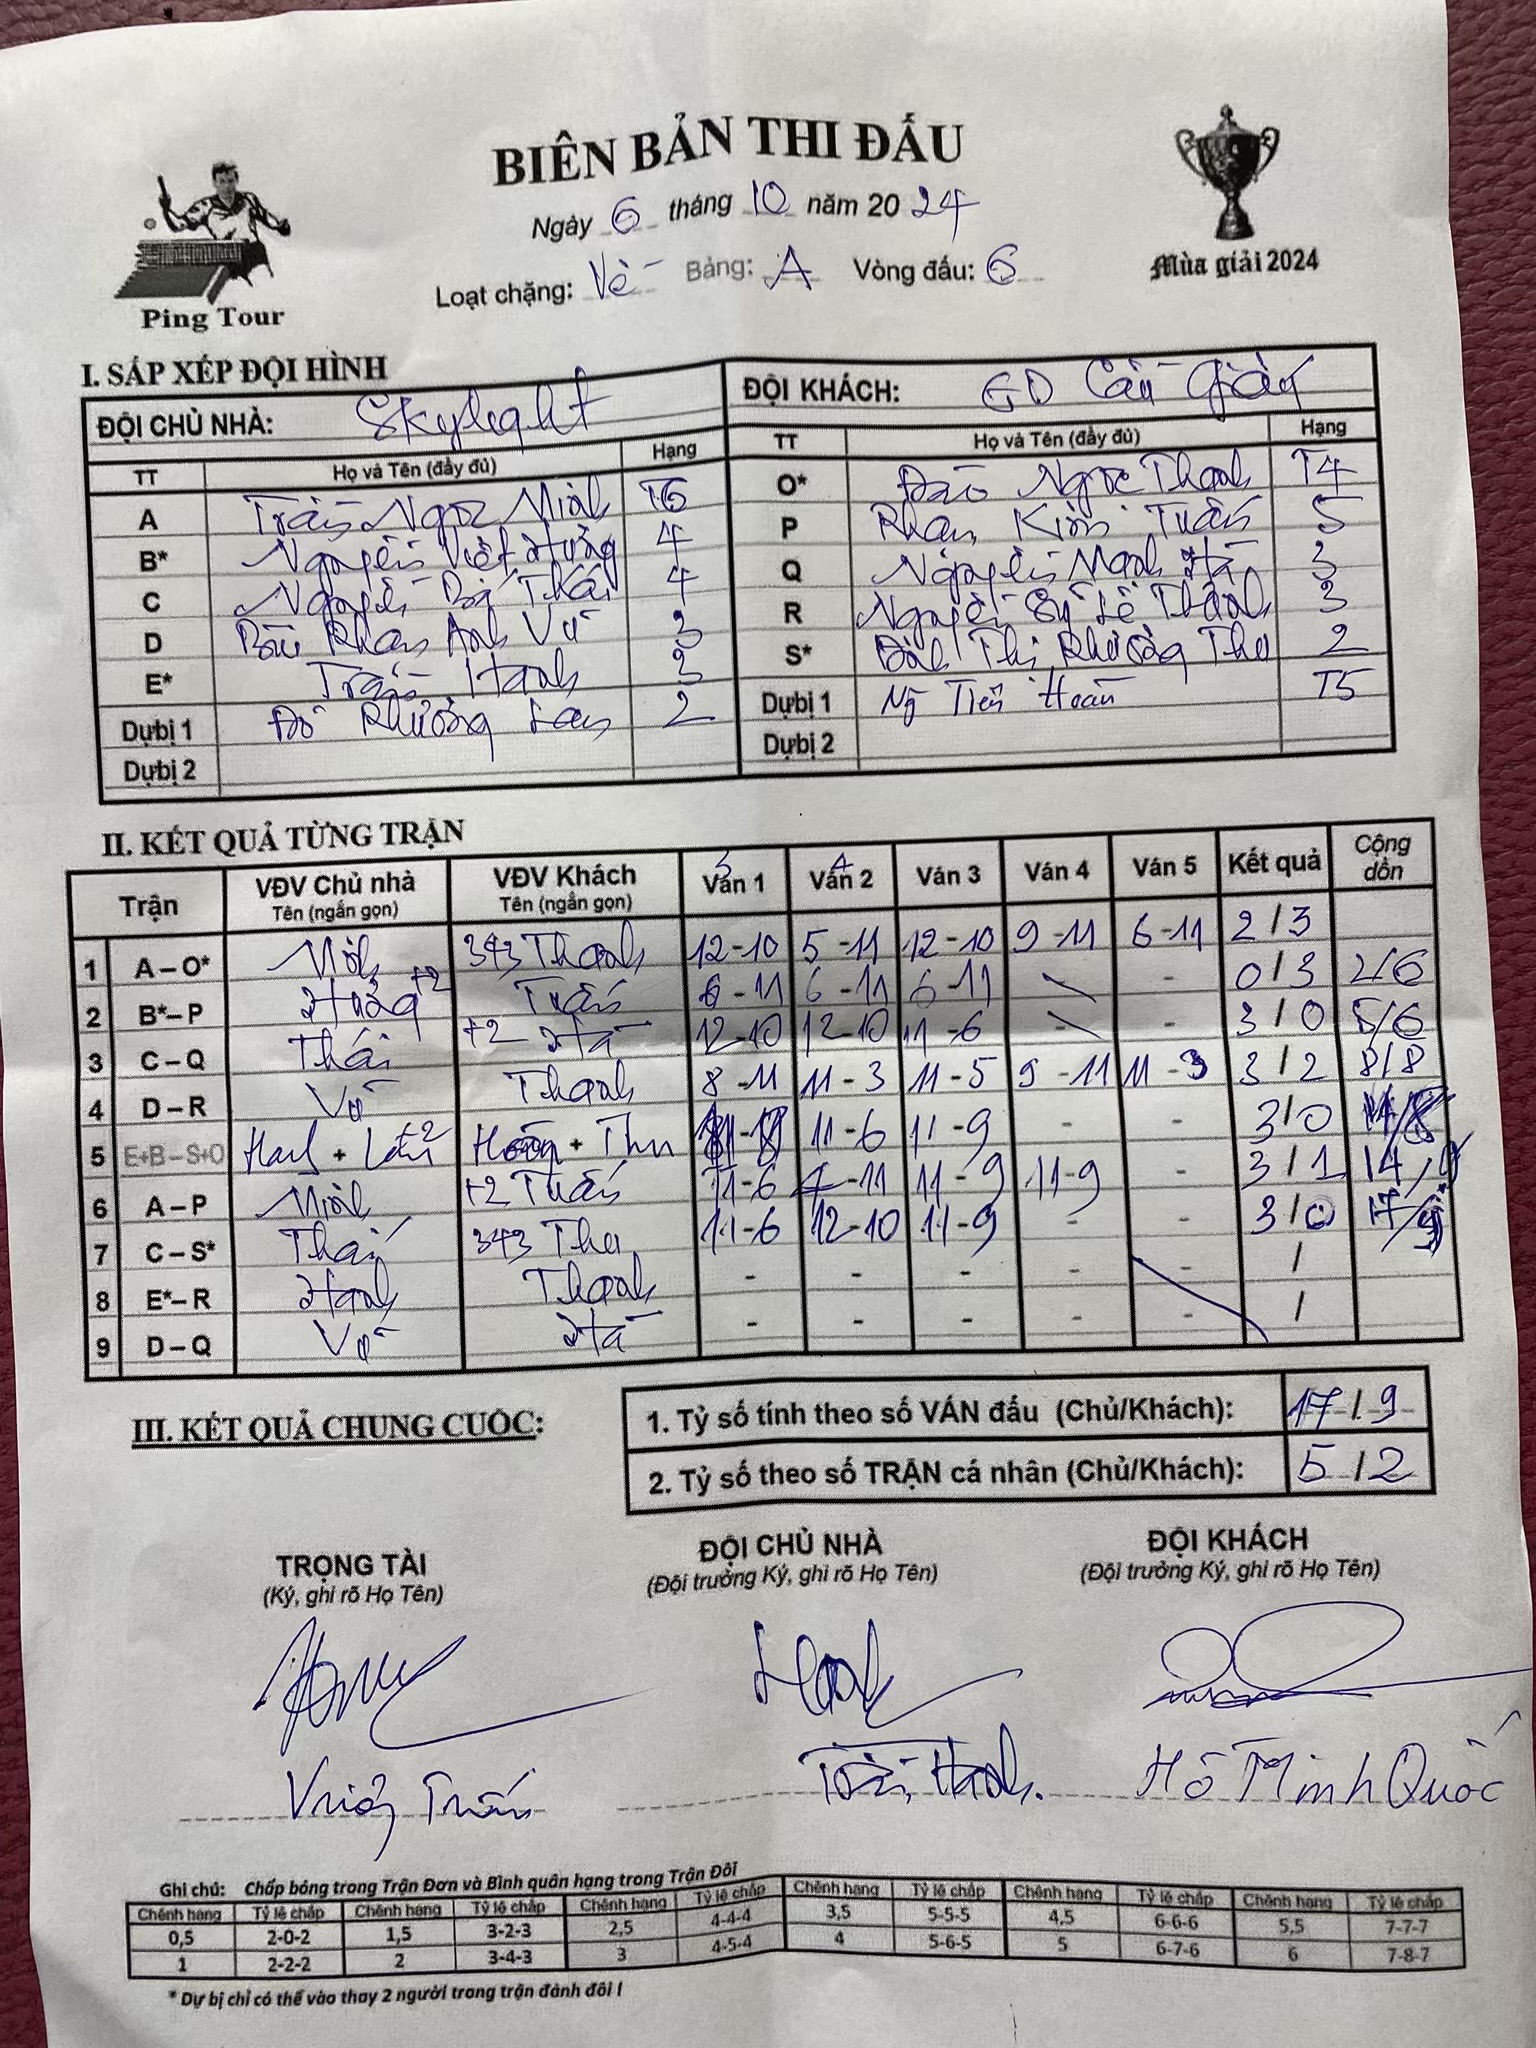 BIÊN BẢN THI ĐẤU
Ngày 6 tháng 10 năm 20 24
Loạt chặng: Về Bảng: A Vòng đấu: 6
Ping Tour
Mùa giải 2024
I. SẮP XẾP ĐỘI HÌNH
ĐỘI CHỦ NHÀ: Skylight ĐỘI KHÁCH: GD Cầu Giấy
TT Họ và Tên (đầy đủ) Hạng TT Họ và Tên (đầy đủ) Hạng
A Trần Ngọc Minh T6 O* Đào Ngọc Thanh T4
B* Nguyễn Việt Hưng 4 P Phan Kim Tuấn 5
C Nguyễn Bá Thái 4 Q Nguyễn Mạnh Hà 3
D Bùi Phan Anh Vũ 3 R Nguyễn Sỹ Lê Thành 3
E* Trần Hạnh 3 S* Đinh Thị Phương Thu 2
Dự bị 1 Đỗ Phương Lan 2 Dự bị 1 Ng Tiến Hoàn T5
Dự bị 2 Dự bị 2
II. KẾT QUẢ TỪNG TRẬN
Trận VĐV Chủ nhà Tên (ngắn gọn) VĐV Khách Tên (ngắn gọn) Ván 1 Ván 2 Ván 3 Ván 4 Ván 5 Kết quả Cộng dồn
1 A – O* Minh 343 Thanh 12-10 5-11 12-10 9-11 6-11 2/3
2 B* – P Hưng +2 Tuấn 6-11 6-11 6-11 - 0/3 2/6
3 C – Q Thái +2 Hà 12-10 12-10 11-6 - 3/0 5/6
4 D – R Vũ Thanh 8-11 11-3 11-5 9-11 11-3 3/2 8/8
5 E+B – S+O + + Thu 11-6 11-9 - - 3/0
6 A – P Minh +2 Tuấn 11-6 7-11 11-9 11-9 - 3/1 14/9
7 C – S* Thái 343 Thu 11-6 12-10 11-9 - - 3/0 17/9
8 E* – R Hạnh Thanh - - - - - /
9 D – Q Vũ Hà - - - - - /
III. KẾT QUẢ CHUNG CUỘC:
1. Tỷ số tính theo số VÁN đấu (Chủ/Khách): 17/9
2. Tỷ số theo số TRẬN cá nhân (Chủ/Khách): 5/2
TRỌNG TÀI ĐỘI CHỦ NHÀ ĐỘI KHÁCH
(Ký, ghi rõ Họ Tên) (Đội trưởng Ký, ghi rõ Họ Tên) (Đội trưởng Ký, ghi rõ Họ Tên)
Trần Hạnh. Hồ Minh Quốc
Ghi chú: Chấp bóng trong Trận Đơn và Bình quân hạng trong Trận Đôi
Chênh hạng Tỷ lệ chấp Chênh hạng Tỷ lệ chấp Chênh hạng Tỷ lệ chấp Chênh hạng Tỷ lệ chấp Chênh hạng Tỷ lệ chấp Chênh hạng Tỷ lệ chấp
0,5 2-0-2 1,5 3-2-3 2,5 4-4-4 3,5 5-5-5 4,5 6-6-6 5,5 7-7-7
1 2-2-2 2 3-4-3 3 4-5-4 4 5-6-5 5 6-7-6 6 7-8-7
* Dự bị chỉ có thể vào thay 2 người trong trận đánh đôi !